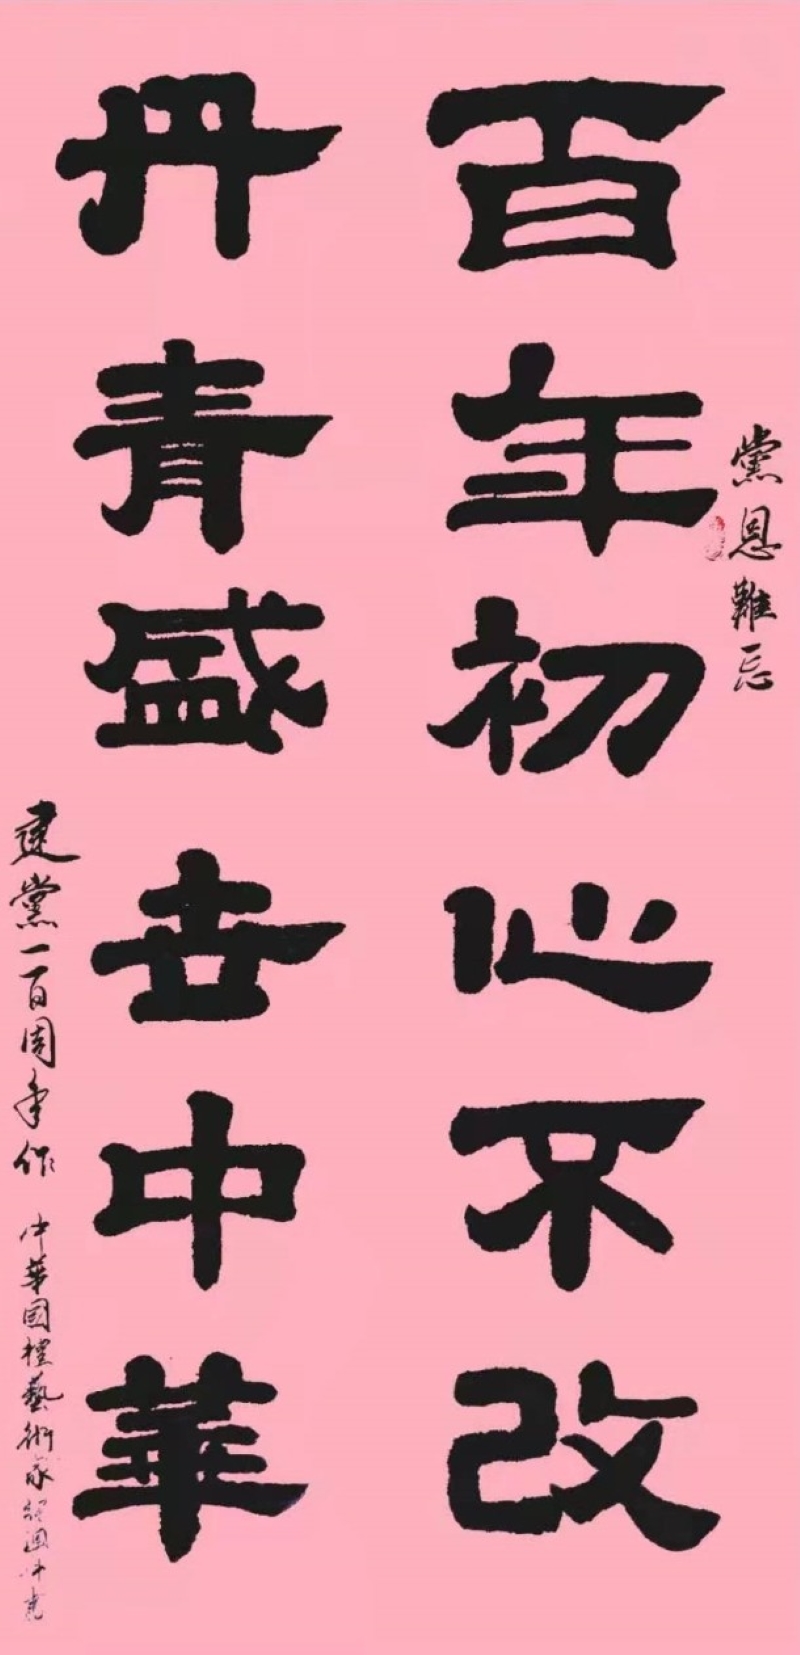 党恩難忘
百年初心不改
丹青盛世中華
建党一百周年作
中華国禮藝術家